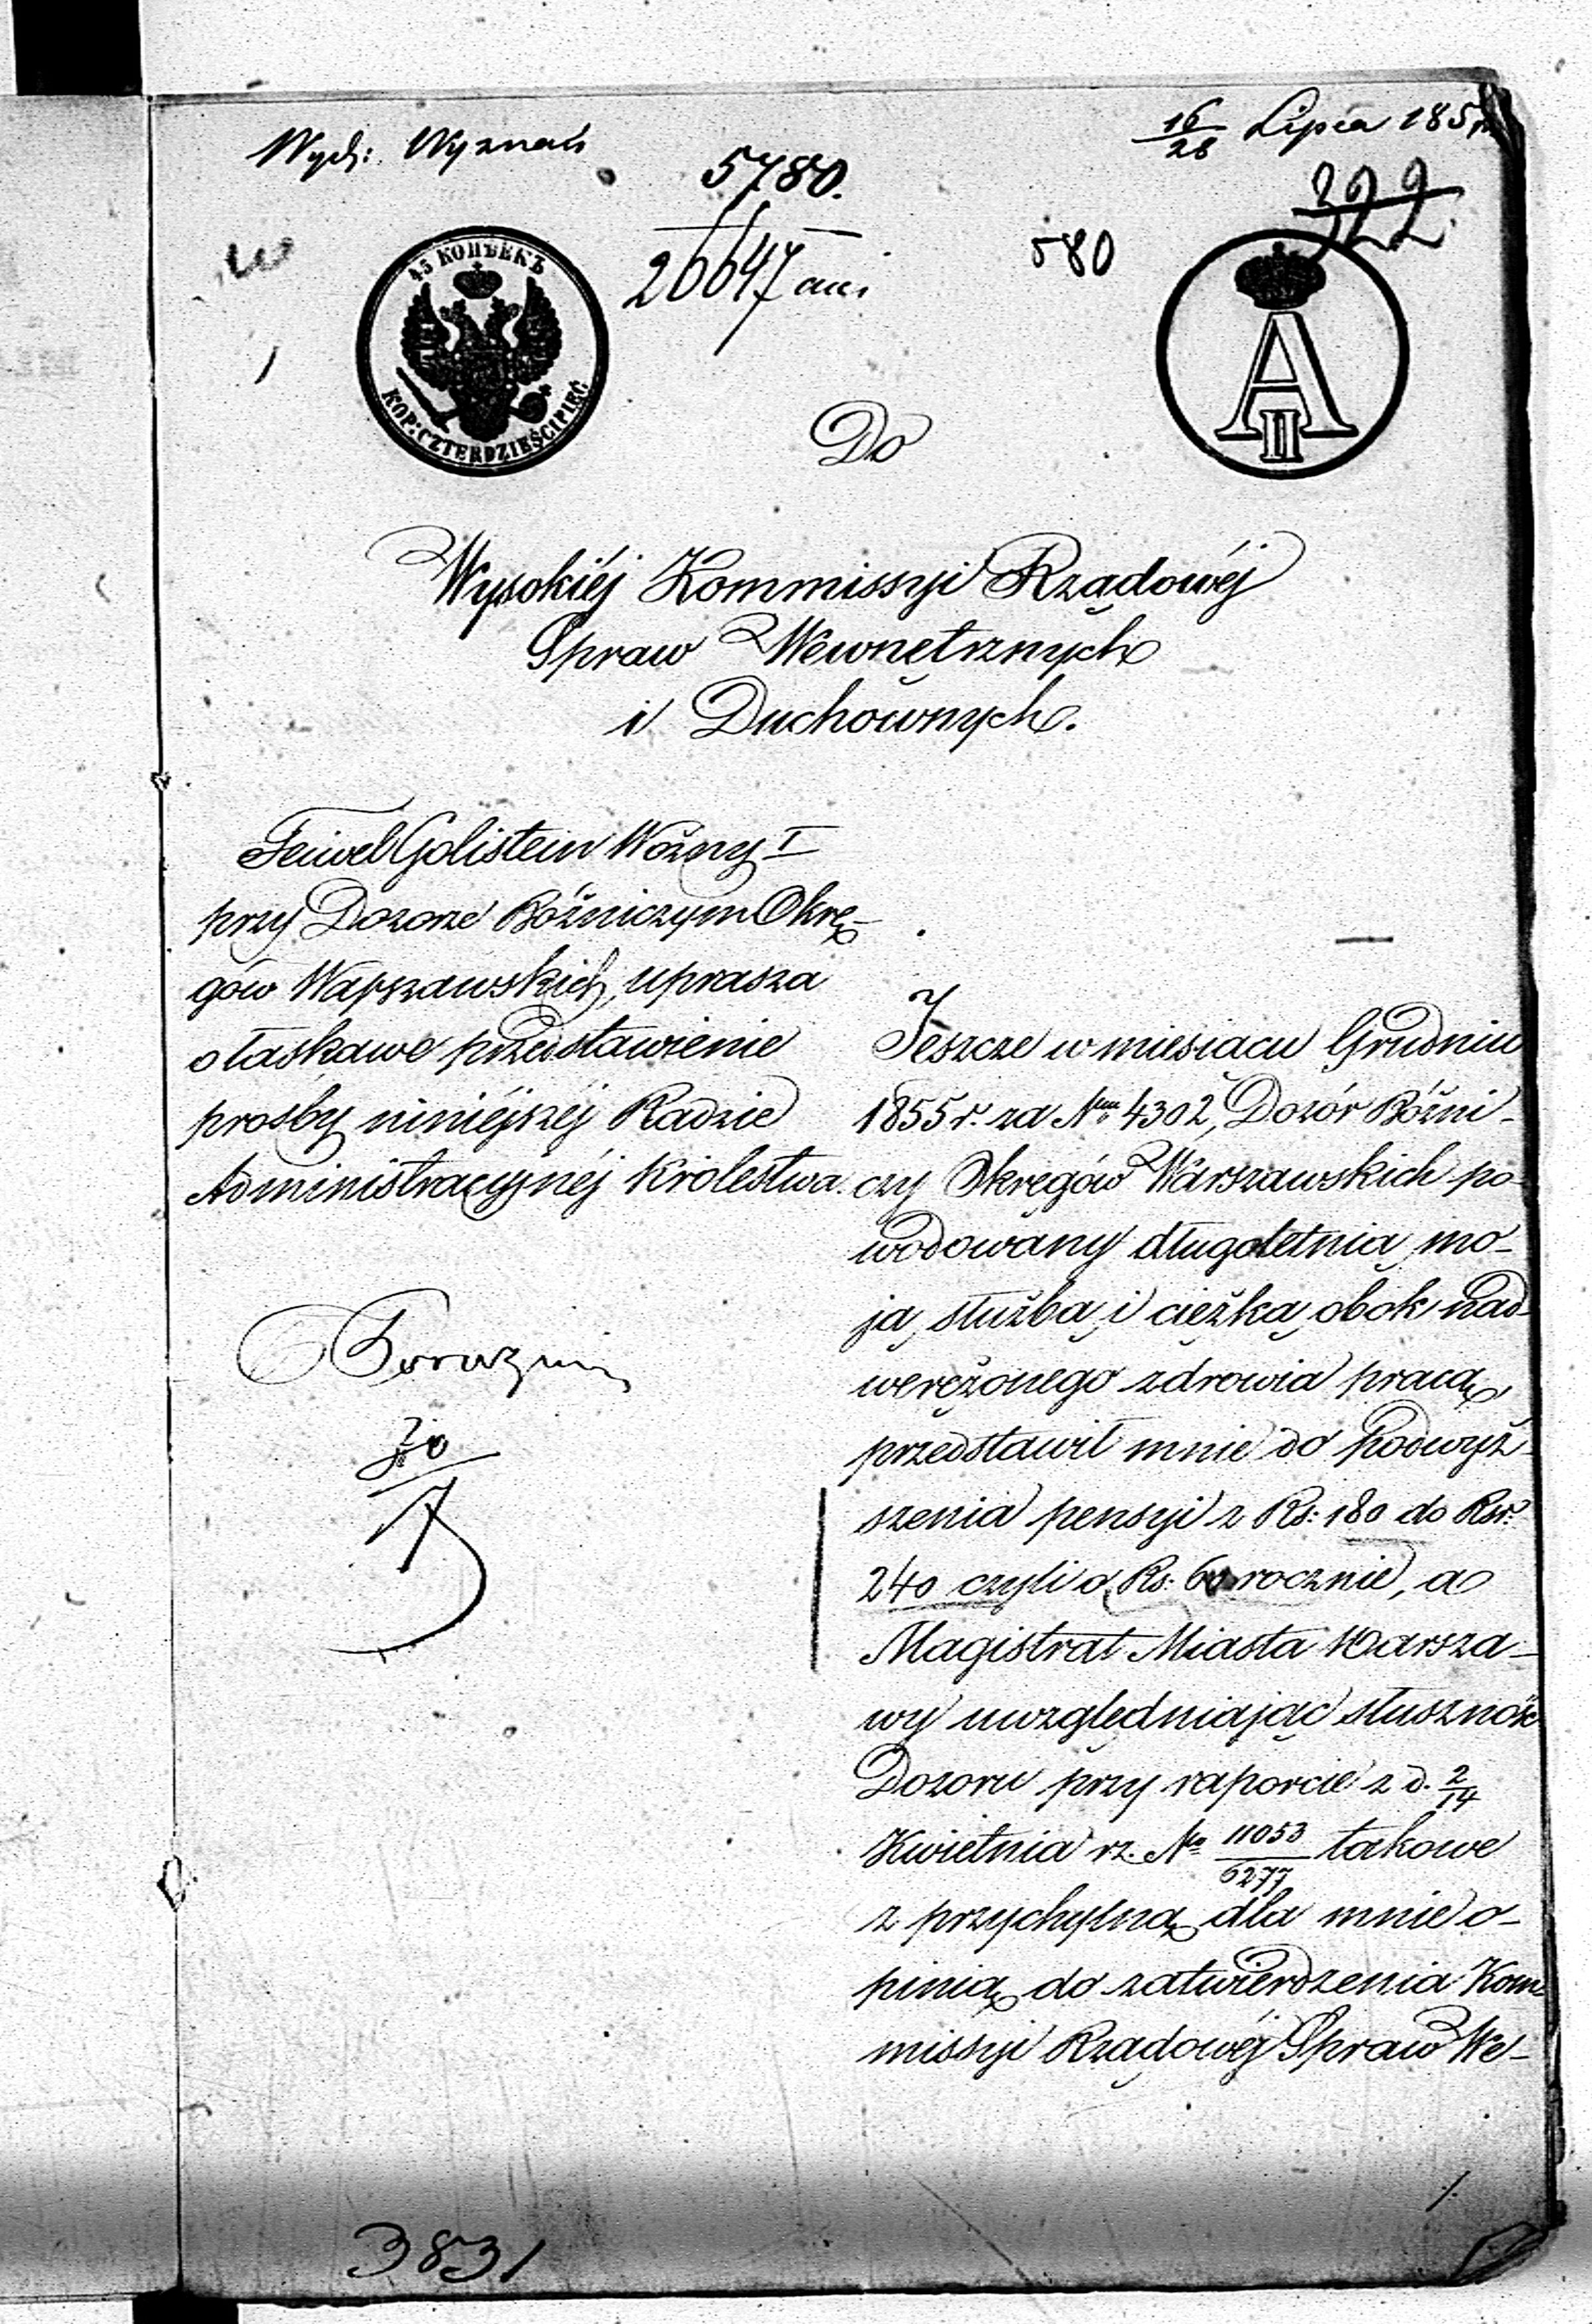 Wydz: Wyznań
16/28 Lipca 185
5780.
26647
322.
580
45 КОПѢЕКЪ
KOP: CZTERDZIEŚCI PIĘĆ
A II
Do
Wysokiéj Kommissyi Rządowéj
Spraw Wewnętrznych
i Duchownych.
Feiwel Golistein Woźny I
przy Dozorze Bóźniczym Okrę-
gów Warszawskich, uprasza
o łaskawe przedstawienie
prośby niniéjszéj Radzie
Administracyjnéj Królestwa.
Jeszcze w miesiącu Grudniu
1855 r. za Nrem 4302, Dozór Bóźni-
czy Okręgów Warszawskich po-
wodowany długoletnią mo-
ją służbą i ciężką obok nad-
werężonego zdrowia pracą,
przedstawił mnie do podwyż-
szenia pensyi z Rs: 180 do Rsr.
240 czyli o Rs: 60 rocznie, a
Magistrat Miasta Warsza-
wy uwzględniając słuszność
Dozoru przy raporcie z d. 2/14
Kwietnia rz. No 11053/6277 takowe
z przychylną dla mnie o-
pinią do zatwierdzenia Kom-
missyi Rządowéj Spraw We-
3831